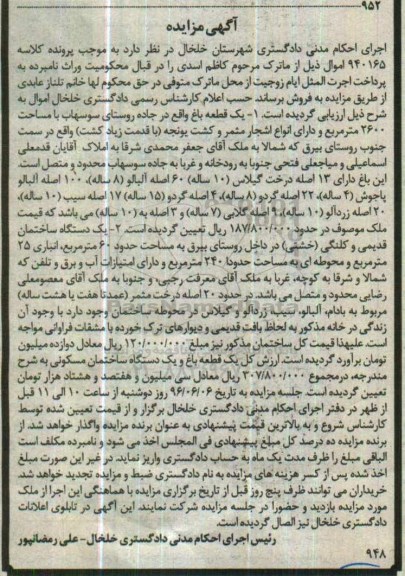 ۹۵۲
آگهی مزایده
اجرای احکام مدنی دادگستری شهرستان خلخال در نظر دارد به موجب پرونده کلاسه
۹۴۰۱۶۵ اموال ذیل از ماترک مرحوم کاظم اسدی را در قبال محکومیت وراث نامبرده به
پرداخت اجرت المثل ایام زوجیت از محل ماترک متوفی در حق محکوم لها خانم تلناز عابدی
از طریق مزایده به فروش برساند. حسب اعلام کارشناس رسمی دادگستری خلخال اموال به
شرح ذیل ارزیابی گردیده است. ۱- یک قطعه باغ واقع در جاده روستای سوسهاب با مساحت
۲۶۰۰ مترمربع و دارای انواع اشجار مثمر و کشت یونجه (با قدمت زیاد کشت) واقع در سمت
جنوب روستای بیرق که شمالا به ملک آقای جعفر محمدی شرقا به املاک آقایان قدمعلی
اسماعیلی و میاجعلی فتحی جنوبا به رودخانه و غربا به جاده سوسهاب محدود و متصل است.
این باغ دارای ۱۳ اصله درخت گیلاس (۱۰ ساله) ۶۰ اصله آلبالو (۸ ساله)، ۱۰۰ اصله آلبالو
پاجوش (۴ ساله)، ۲۲ اصله گردو (۸ ساله)، ۴ اصله گردو (۱۵ ساله) ۱۷ اصله سیب (۱۰ ساله)،
۲۰ اصله زردآلو (۱۰ ساله)، ۲ اصله گلابی (۷ ساله) و ۳ اصله به (۱۰ ساله) می باشد که قیمت
ملک موصوف در حدود ۱۸۷/۸۰۰/۰۰۰ ریال تعیین گردیده است. ۲- یک دستگاه ساختمان
قدیمی و کلنگی (خشتی) در داخل روستای بیرق به مساحت حدود ۶۰ مترمربع، انباری ۲۵
مترمربع و محوطه ای به مساحت حدودا ۲۴۰ مترمربع و دارای امتیازات آب و برق و تلفن که
شمالا و شرقا به کوچه، غربا به ملک آقای معرفت رجبی، و جنوبا به ملک آقای معصومعلی
رضایی محدود و متصل می باشد. در حدود ۲۰ اصله درخت مثمر (عمدتا هفت یا هشت ساله)
مربوط به بادام، آلبالو، سیب، زردآلو و گیلاس در محوطه ساختمان وجود دارد با وجود آن
زندگی در خانه مذکور به لحاظ بافت قدیمی و دیوارهای ترک خورده با مشقات فراوانی مواجه
است. علیهذا قیمت کل ساختمان مذکور نیز مبلغ ۱۲۰/۰۰۰/۰۰۰ ریال معادل دوازده میلیون
تومان برآورد گردیده است. ارزش کل یک قطعه باغ و یک دستگاه ساختمان مسکونی به شرح
مندرجه، درمجموع ۳۰۷/۸۰۰/۰۰۰ ریال معادل سی میلیون و هفتصد و هشتاد هزار تومان
تعیین گردیده است. جلسه مزایده به تاریخ ۹۶/۰۶/۰۶ روز دوشنبه از ساعت ۱۰ الی ۱۱ قبل
از ظهر در دفتر اجرای احکام مدنی دادگستری خلخال برگزار و از قیمت تعیین شده توسط
کارشناس شروع و به بالاترین قیمت پیشنهادی به عنوان برنده مزایده واگذار خواهد شد. از
برنده مزایده ده درصد کل مبلغ پیشنهادی فی المجلس اخذ می شود و نامبرده مکلف است
الباقی مبلغ را ظرف مدت یک ماه به حساب دادگستری واریز نماید. در غیر این صورت مبلغ
اخذ شده پس از کسر هزینه های مزایده به نام دادگستری ضبط و مزایده تجدید خواهد شد.
خریداران می توانند ظرف پنج روز قبل از تاریخ برگزاری مزایده با هماهنگی این اجرا از ملک
مورد مزایده بازدید و حضورا در جلسه مزایده شرکت نمایند. این آگهی در تابلوی اعلانات
دادگستری خلخال نیز الصاق گردیده است.
رئیس اجرای احکام مدنی دادگستری خلخال- علی رمضانپور
۹۴۸